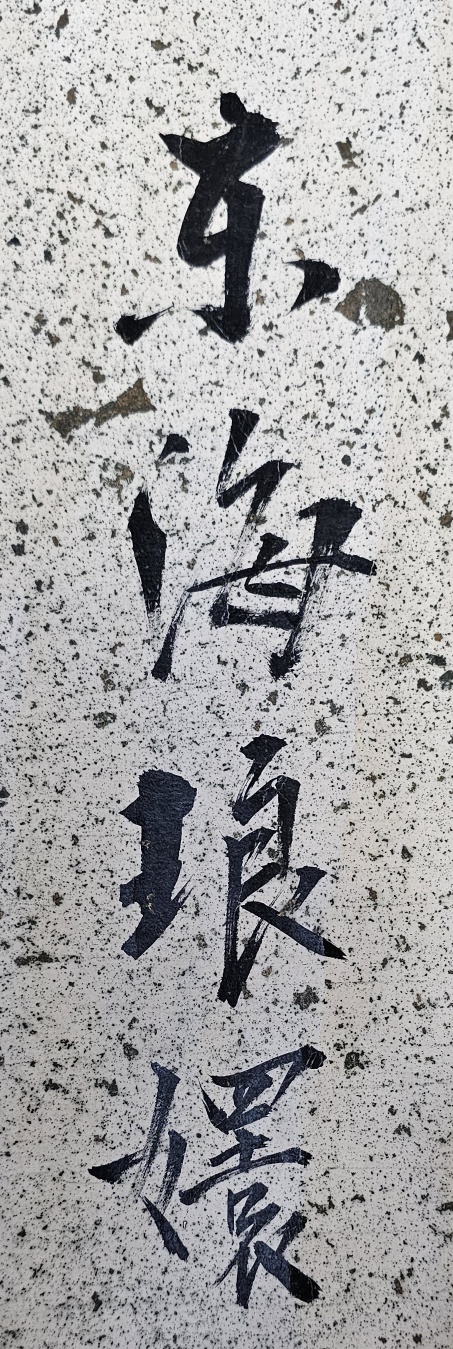 东海琅嬛